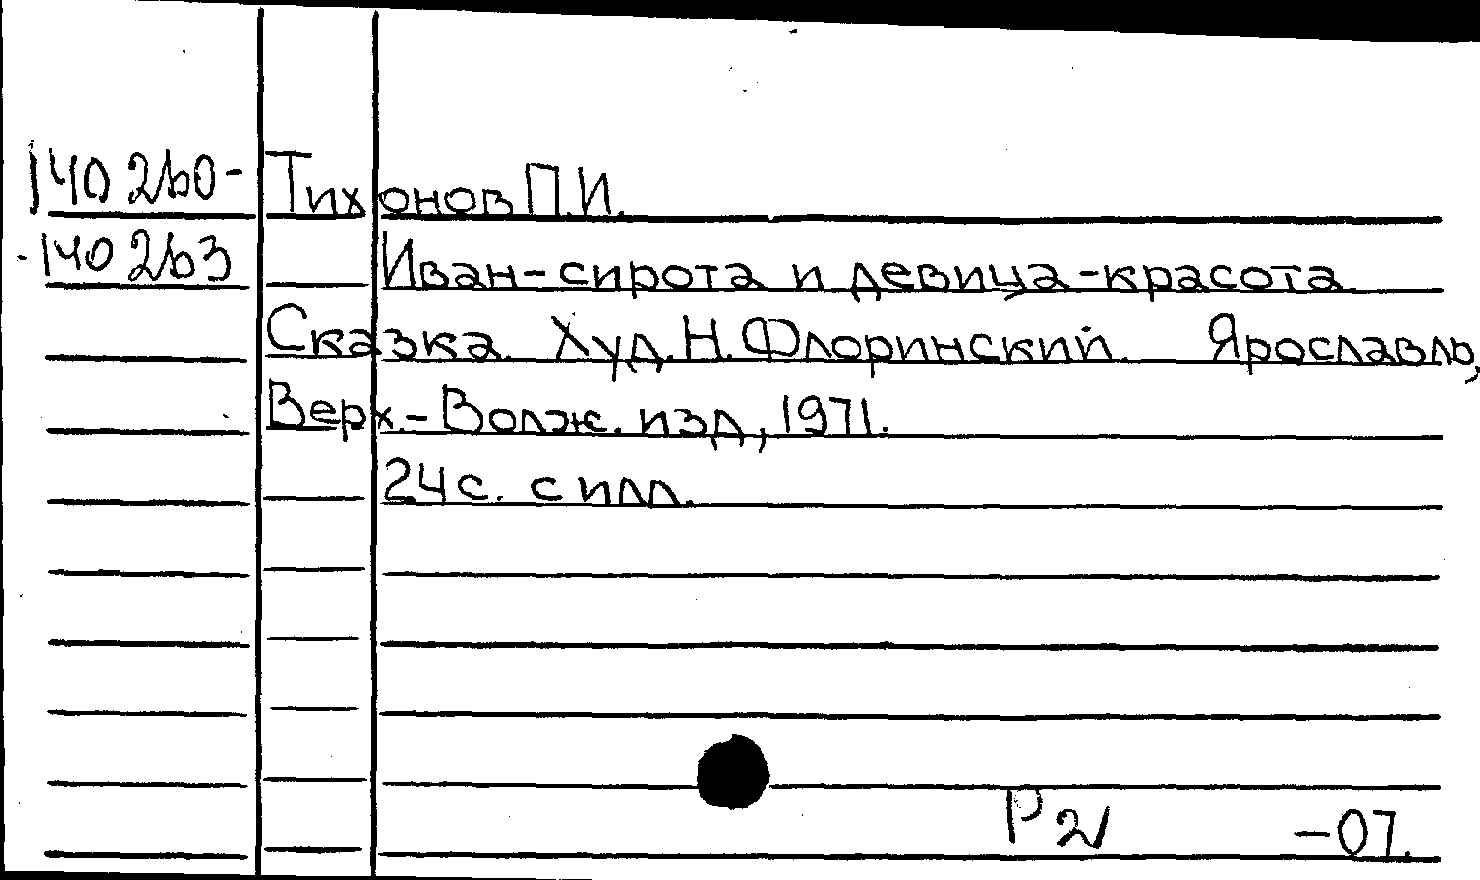 140 260- Тихонов П.И.
140 263 Иван-сирота и девица-красота
Сказка. Худ. Н. Флоринский. Ярославль,
Верх.-Волж. изд, 1971.
24 с. с илл.
Р2 -07.